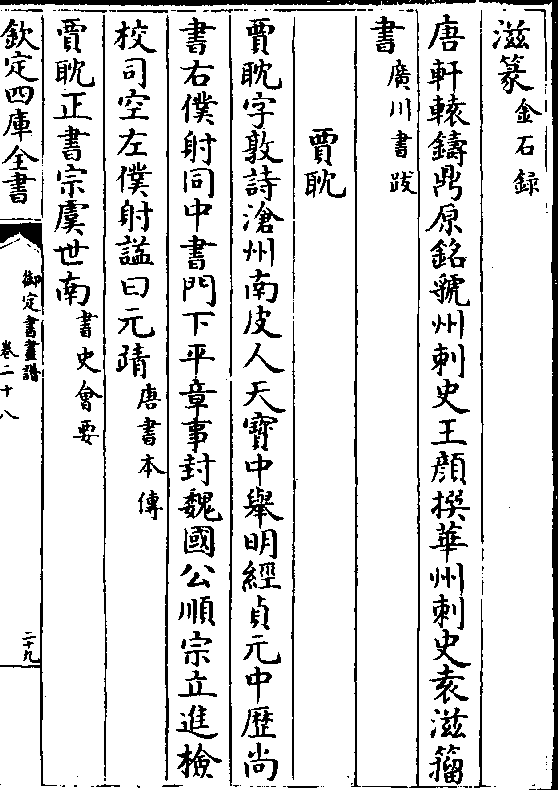 滋篆金石録
唐軒轅鑄鼎原銘虢州刺史王顔撰華州刺史袁滋籀
書廣川書跋
賈耽
賈耽字敦詩滄州南皮人天寶中舉明經貞元中歴尚
書右僕射同中書門下平章事封魏國公順宗立進檢
校司空左僕射諡曰元靖唐書本傳
賈耽正書宗虞世南書史會要
欽定四庫全書
御定書畫譜
卷二十八
二十九